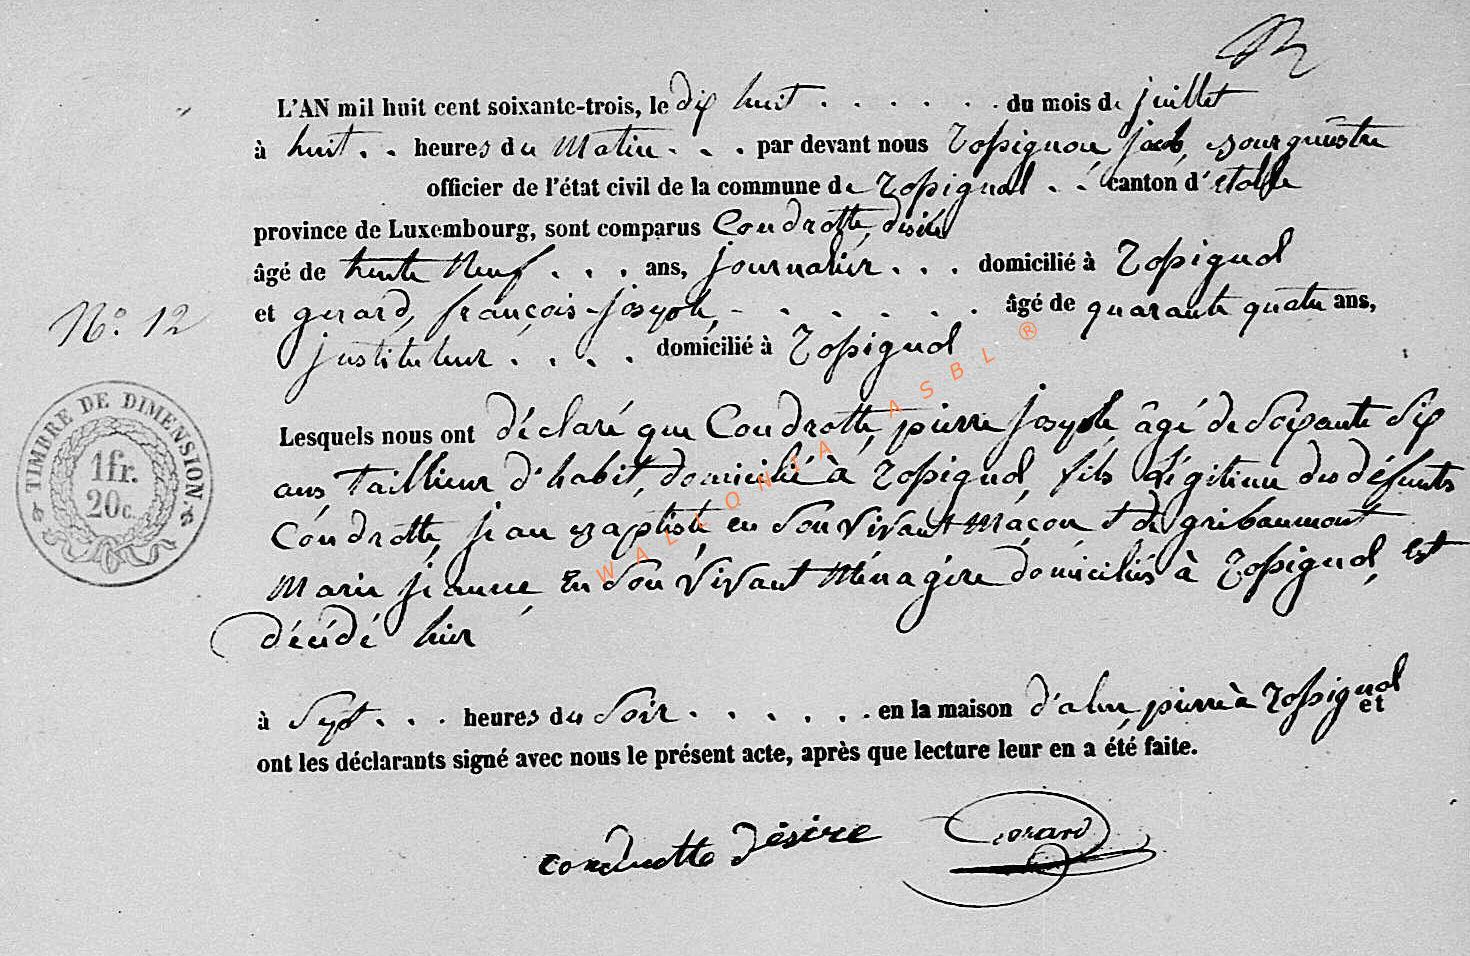 L'AN mil huit cent soixante-trois, le dix huit . . . . . . du mois de juillet
à huit . . heures du Matin . . . par devant nous Rossignon, jacob, Bourguemstre
officier de l'état civil de la commune de Rossignol . . canton d'étalle
province de Luxembourg, sont comparus Condrotte, désiré
âgé de trente Neuf . . . ans, journalier . . . domicilié à Rossignol
Nº. 12
et gerard, françois-joseph, - . . . . . âgé de quarante quatre ans,
justituteur . . . . domicilié à Rossignol
TIMBRE DE DIMENSION.
1fr.
20c.
Lesquels nous ont déclaré que Condrotte, pierre joseph, âgé de Soixante Dix
ans Tailleur d'habit, domicilié à Rossignol, fils Légitime des défunts
Condrotte, jean Baptiste, en Son Vivant Maçon, & de gribaumont
Marie jeanne, En Son Vivant Ménagère domiciliés à Rossignol, est
décédé hier
à Sept . . . heures du Soir . . . . . . en la maison d' pierre à Rossignol
et
ont les déclarants signé avec nous le présent acte, après que lecture leur en a été faite.
condrotte Désire Gerard
WALLONIA ASBL ®